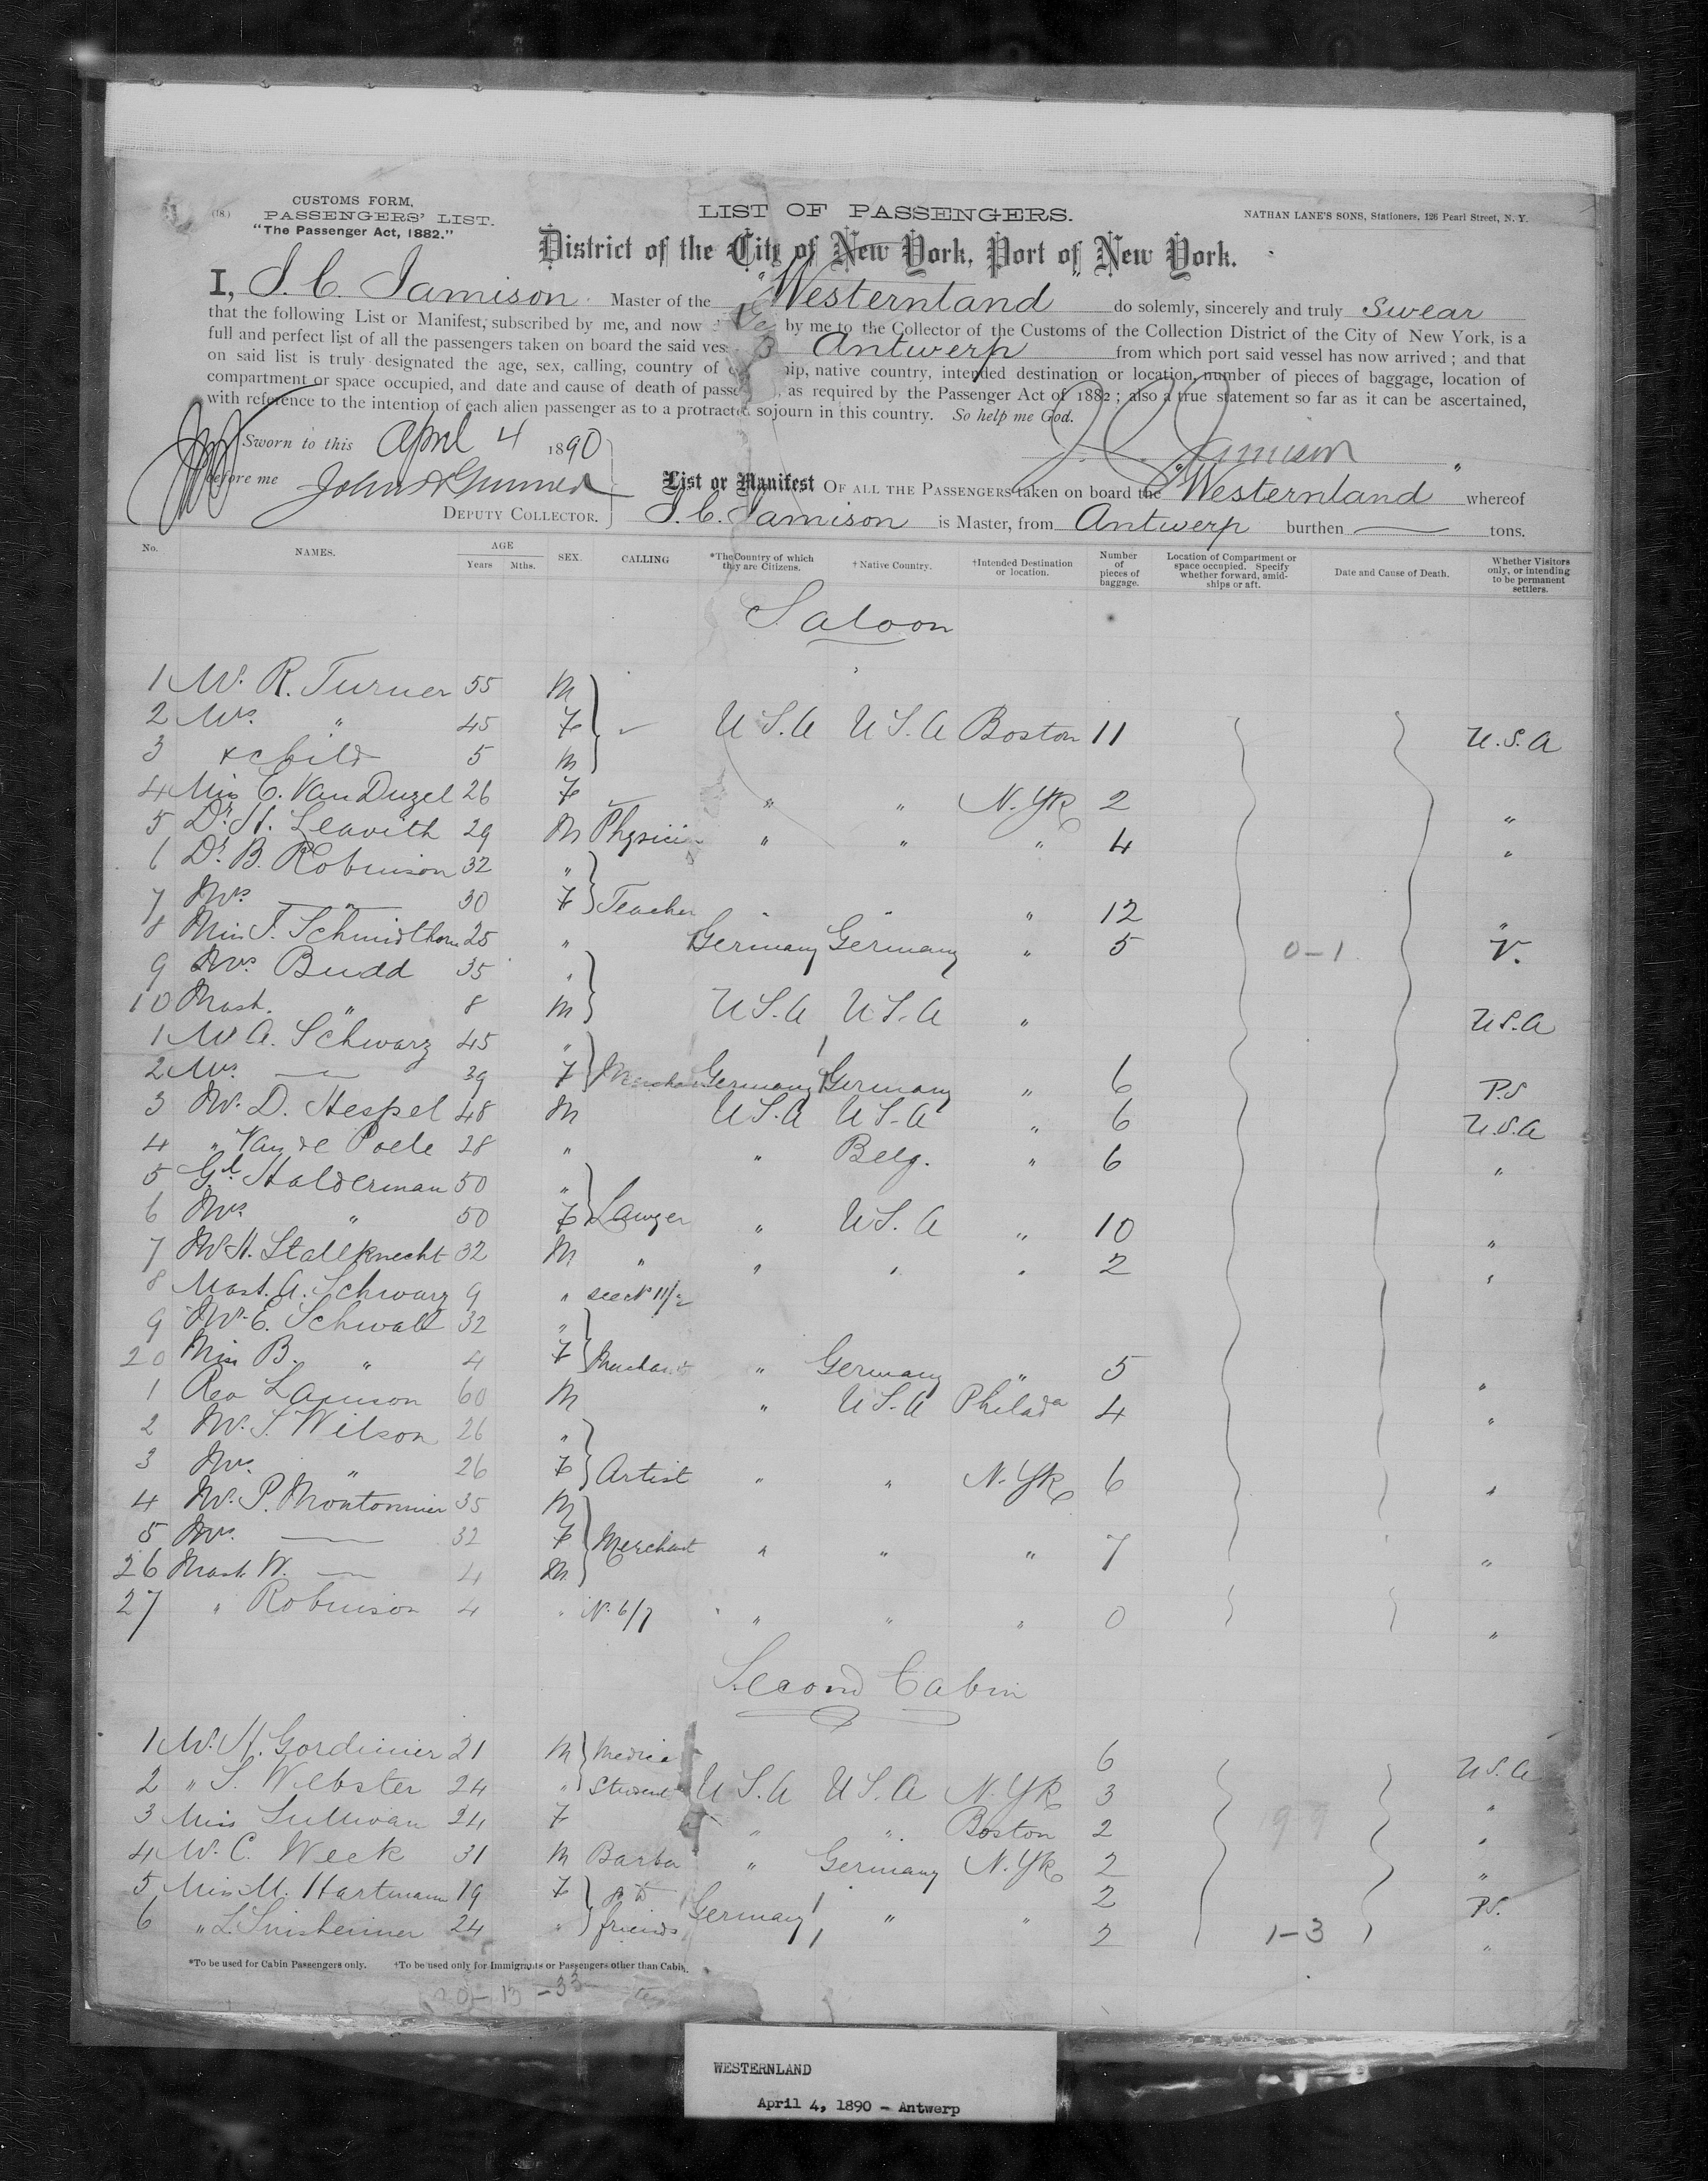 (18.)
CUSTOMS FORM,
PASSENGERS' LIST.
"The Passenger Act, 1882."
LIST OF PASSENGERS.
NATHAN LANE'S SONS, Stationers, 126 Pearl Street, N. Y.
District of the City of New York, Port of New York.
I, J. C. Jamison Master of the "Westernland" do solemnly, sincerely and truly swear
that the following List or Manifest, subscribed by me, and now by me to the Collector of the Customs of the Collection District of the City of New York, is a
full and perfect list of all the passengers taken on board the said ves Antwerp from which port said vessel has now arrived ; and that
on said list is truly designated the age, sex, calling, country of hip, native country, intended destination or location, number of pieces of baggage, location of
compartment or space occupied, and date and cause of death of passe , as required by the Passenger Act of 1882 ; also a true statement so far as it can be ascertained,
with reference to the intention of each alien passenger as to a protracted sojourn in this country. So help me God.
Sworn to this April 4 1890
J. C. Jamison
before me
DEPUTY COLLECTOR.
List or Manifest OF ALL THE PASSENGERS taken on board the "Westernland" whereof
J. C. Jamison is Master, from Antwerp burthen — tons.
No. NAMES. AGE Years Mths. SEX. CALLING *The Country of which they are Citizens. † Native Country. †Intended Destination or location. Number of pieces of baggage. Location of Compartment or space occupied. Specify whether forward, amidships or aft. Date and Cause of Death. Whether Visitors only, or intending to be permanent settlers.
Saloon
1 Mr. R. Turner 55 M
2 Mrs. " 45 F U S. A U S. A Boston 11 U.S.A
3 & child 5 M
4 Miss C. Van Duzel 26 F " " N. Yk 2 "
5 Dr. H. Leavith 29 M Physician " " " 4 "
6 Dr. B. Robinson 32 "
7 Mrs. " 30 F Teacher " " " 12 "
8 Miss F. Schmidthorn 25 " Germany Germany " 5 0-1 V.
9 Mrs. Budd 35 "
10 Mast. " 8 M U S. A U S. A " U S. A
1 Mr A. Schwarz 45 "
2 Mrs. — 39 F Merchant Germany Germany " 6 P.S
3 Mr. D. Hespel 48 M U S. A U S. A " 6 U.S.A
4 " Van de Poele 28 " " Belg. " 6 "
5 Gl. Halderman 50 "
6 Mrs " 50 F Lawyer " U S. A " 10 "
7 Mr H. Stallknecht 32 M " " " " 2 "
8 Mast. A. Schwarz 9 " see No 11/2
9 Mr. E. Schwab 32 "
20 Miss B. " 4 F Merchant " Germany " 5 "
1 Rev Lamson 60 M " U S. A Philada 4 "
2 Mr. S. Wilson 26 "
3 Mrs. " 26 F Artist " " N. Yk 6 "
4 Mr. P. Montonnier 35 M
5 Mrs. — 32 F Merchant " " " 7 "
26 Mast. W. — 4 M
27 " Robinson 4 " No. 6/7 " " " 0 "
Second Cabin
1 Mr. H. Gordinier 21 M Medical 6 U S. A
2 " S. Webster 24 " Student U S. A U S. A N. Yk 3 "
3 Miss Sullivan 24 F " " Boston 2 "
4 Mr. C. Week 31 M Barber " Germany N. Yk 2 "
5 Miss M. Hartmann 19 F to Germany " " 2 P.S.
6 " L. Sinsheimer 24 " friends 2 1-3 "
*To be used for Cabin Passengers only. †To be used only for Immigrants or Passengers other than Cabin.
WESTERNLAND
April 4, 1890 - Antwerp